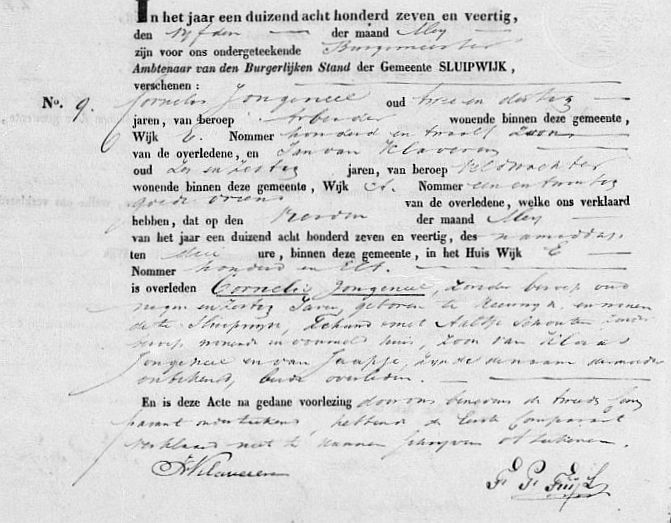 In het jaar een duizend acht honderd zeven en veertig,
den Vijfden der maand Mey
zijn voor ons ondergeteekende Burgemeester
Ambtenaar van den Burgerlijken Stand der Gemeente SLUIPWIJK,
verschenen:
No. 9. Cornelis Jongeneel oud twee en dertig
jaren, van beroep Arbeider wonende binnen deze gemeente,
Wijk E. Nommer honderd en twaalf Zoon
van de overledene, en Jan van Klaveren
oud Zes en Zestig jaren, van beroep Veldwachter
wonende binnen deze gemeente, Wijk A. Nommer een en twintig
goede vriend van de overledene, welke ons verklaard
hebben, dat op den Vierden der maand Mey
van het jaar een duizend acht honderd zeven en veertig, des namiddags
ten ure, binnen deze gemeente, in het Huis Wijk E
Nommer honderd en Elf.
is overleden Cornelis Jongeneel, Zonder beroep oud
negen en Zestig Jaren, geboren te Reeuwijk, en wonende
te Sluipwijk, Echtand met Aaltje Schouten Zonder
beroep wonende in voormeld huis, Zoon van Klaas
Jongeneel en van Jaapje, Zynde de naam der moeder
onbekend, beide overleden.
En is deze Acte na gedane voorlezing door ons benevens de tweede Com
parant onderteekend, hebbende de Eerste Comparant
verklaard niet te kunnen schrijven of teekenen.
JvKlaveren